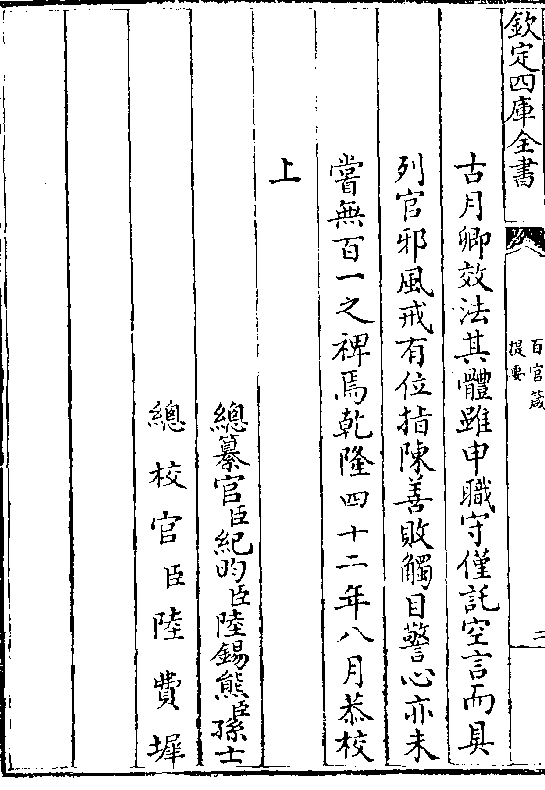 欽定四庫全書
百官箴
提要
二
古月卿效法其體雖申職守僅託空言而具
列官邪風戒有位指陳善敗觸目警心亦未
嘗無百一之裨焉乾隆四十二年八月恭校
上
總纂官臣紀昀臣陸錫熊臣孫士
總校官臣陸費墀